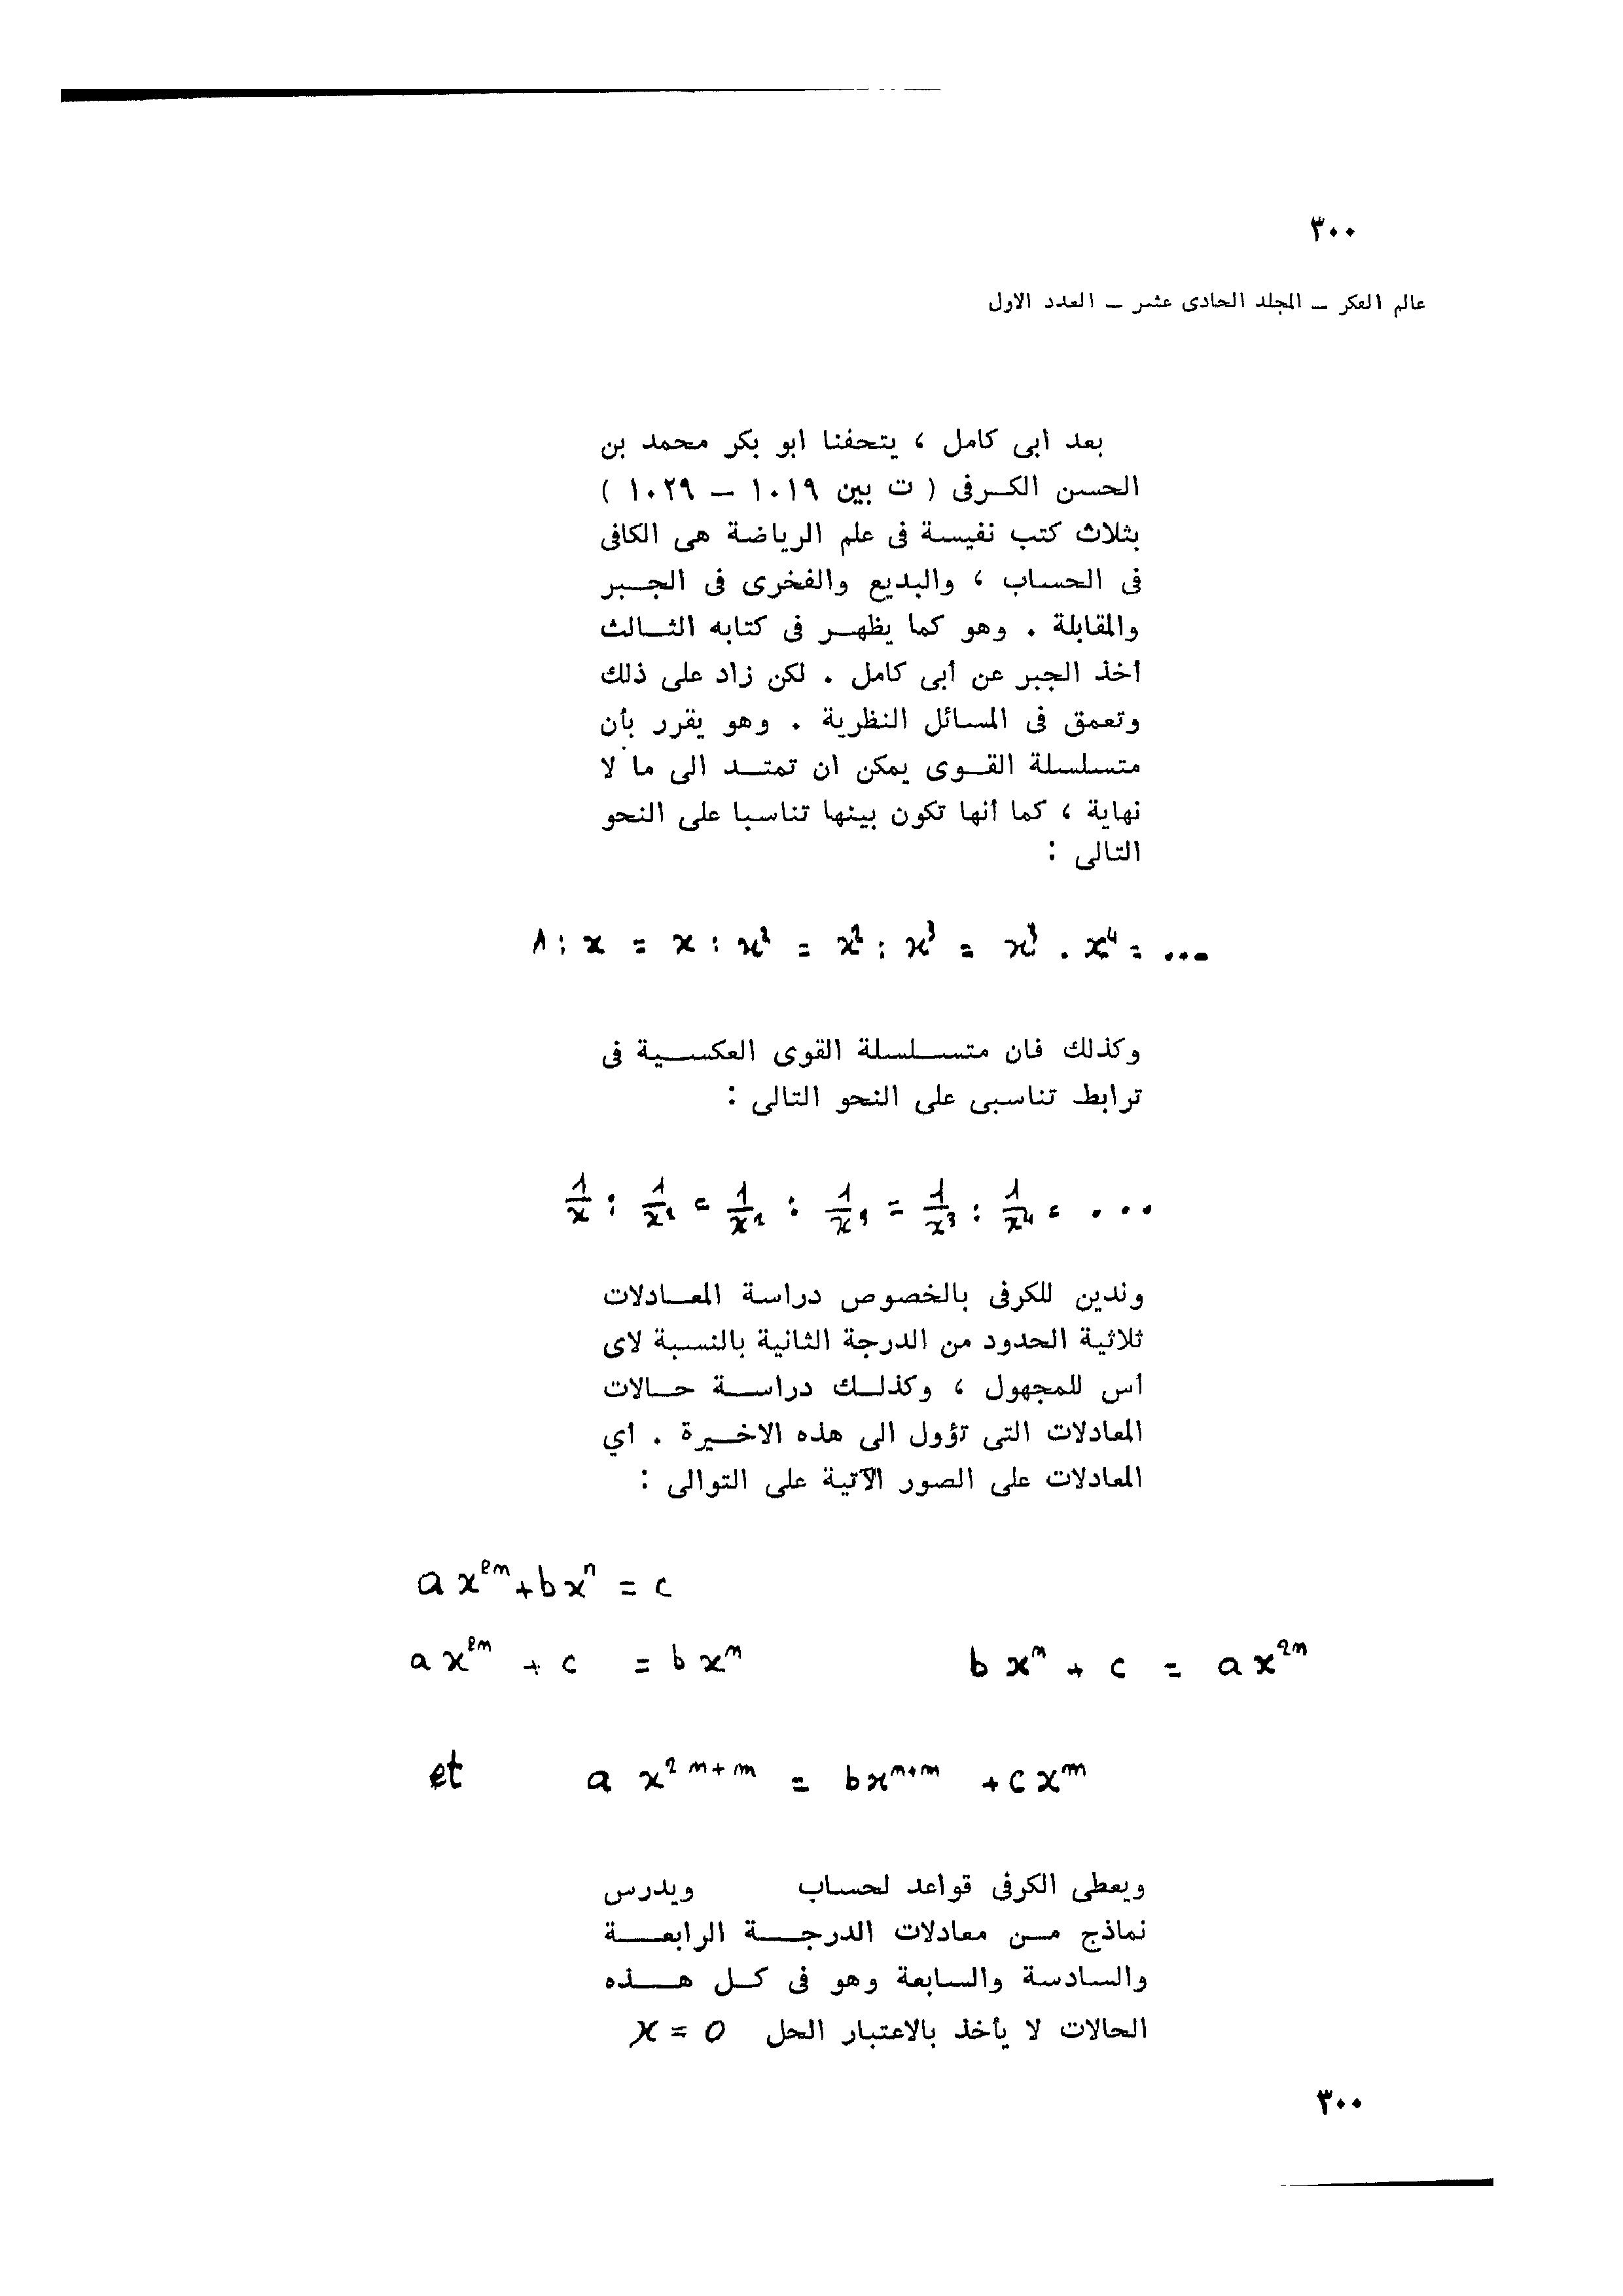 ٣٠٠
عالم الفكر ــ المجلد الحادى عشر ــ العدد الاول
بعد أبى كامل ، يتحفنا ابو بكر محمد بن
الحسن الكرفى ( ت بين ١٠١٩ ــ ١٠٢٩ )
بثلاث كتب نفيسة فى علم الرياضة هى الكافى
فى الحساب ، والبديع والفخرى فى الجبر
والمقابلة . وهو كما يظهر فى كتابه الثالث
أخذ الجبر عن أبى كامل . لكن زاد على ذلك
وتعمق فى المسائل النظرية . وهو يقرر بأن
متسلسلة القوى يمكن ان تمتد الى ما لا
نهاية ، كما أنها تكون بينها تناسبا على النحو
التالى :
1 : x = x : x² = x² : x³ = x³ . x⁴ = ...
وكذلك فان متسلسلة القوى العكسية فى
ترابط تناسبى على النحو التالى :
1/x : 1/x² = 1/x² : 1/x³ = 1/x³ : 1/x⁴ = ...
وندين للكرفى بالخصوص دراسة المعادلات
ثلاثية الحدود من الدرجة الثانية بالنسبة لاى
أس للمجهول ، وكذلك دراسة حالات
المعادلات التى تؤول الى هذه الاخيرة . أي
المعادلات على الصور الآتية على التوالى :
ax²ᵐ + bxⁿ = c
ax²ᵐ + c = bxⁿ bxⁿ + c = ax²ⁿ
et a x²ⁿ⁺ᵐ = bxⁿ⁺ᵐ + cxᵐ
ويعطى الكرفى قواعد لحساب ويدرس
نماذج من معادلات الدرجة الرابعة
والسادسة والسابعة وهو فى كل هذه
الحالات لا يأخذ بالاعتبار الحل x = 0
٣٠٠